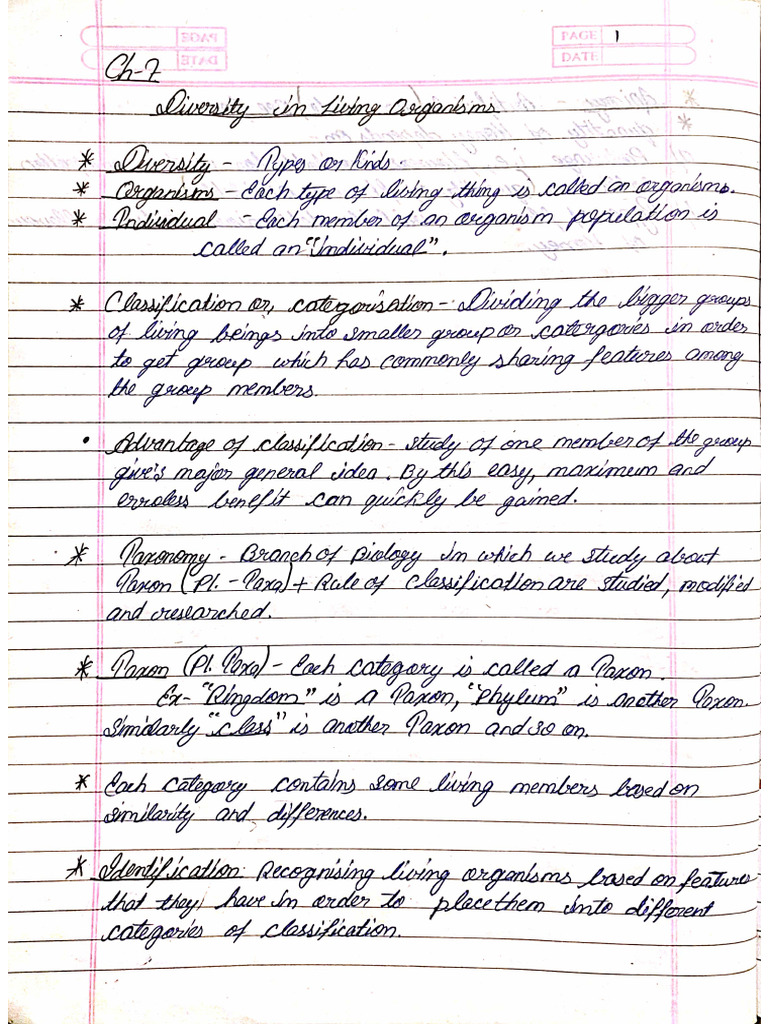 PAGE 1
DATE
Ch-7
Diversity in Living Organisms
* Diversity - Types or Kinds.
* Organisms - Each type of living thing is called an organisms.
* Individual - Each member of an organism population is
called an "individual".
* Classification or, categorisation - Dividing the bigger groups
of living beings into smaller group or catergories in order
to get group which has commonly sharing features among
the group members.
• Advantage of classification - study of one member of the group
give's major general idea. By this easy, maximum and
erroless benefit can quickly be gained.
* Taxonomy - Branch of Biology in which we study about
Taxon (Pl. - Taxa) + Rule of classification are studied, modified
and researched.
* Taxon (Pl. Taxa) - Each category is called a Taxon.
Ex- "Kingdom" is a Taxon, "Phylum" is another Taxon.
Similarly "class" is another Taxon and so on.
* Each category contains some living members based on
similarity and differences.
* Identification: Recognising living organisms based on features
that they have in order to place them into different
categories of classification.